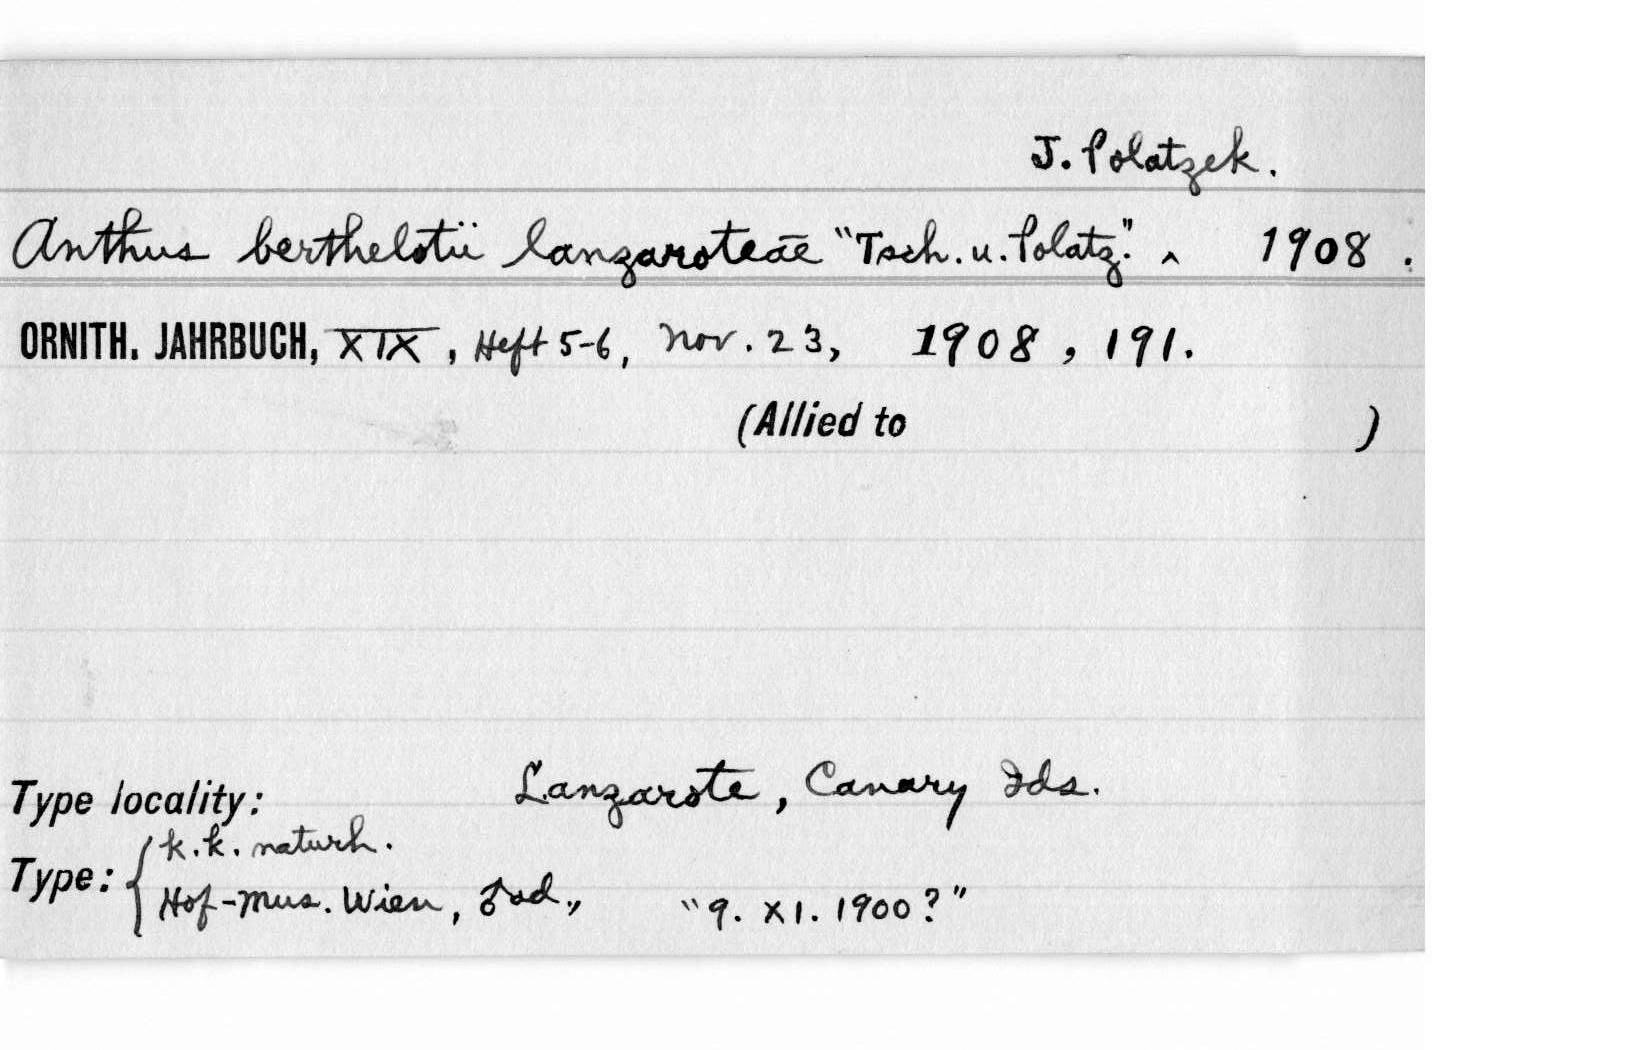 J. Polatzek.
Anthus berthelotii lanzaroteae "Tsch. u. Polatz." ^ 1908.
ORNITH. JAHRBUCH, XIX, Heft 5-6, Nov. 23, 1908, 191.
(Allied to )
Type locality: Lanzarote, Canary Ids.
Type: { k.k. naturh.
Hof-Mus. Wien, ♂ ad., "9. XI. 1900?"